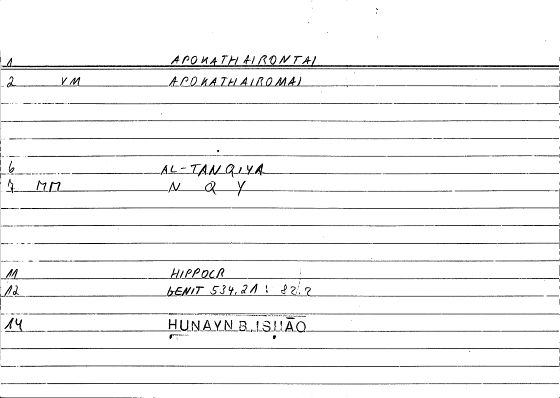 1 APOKATHAIRONTAI
2 VM APOKATHAIROMAI
6 AL-TANQIYA
7 MM N Q Y
11 HIPPOCR
12 GENIT 534.21 : 82.2
14 HUNAYN B. ISḤĀQ